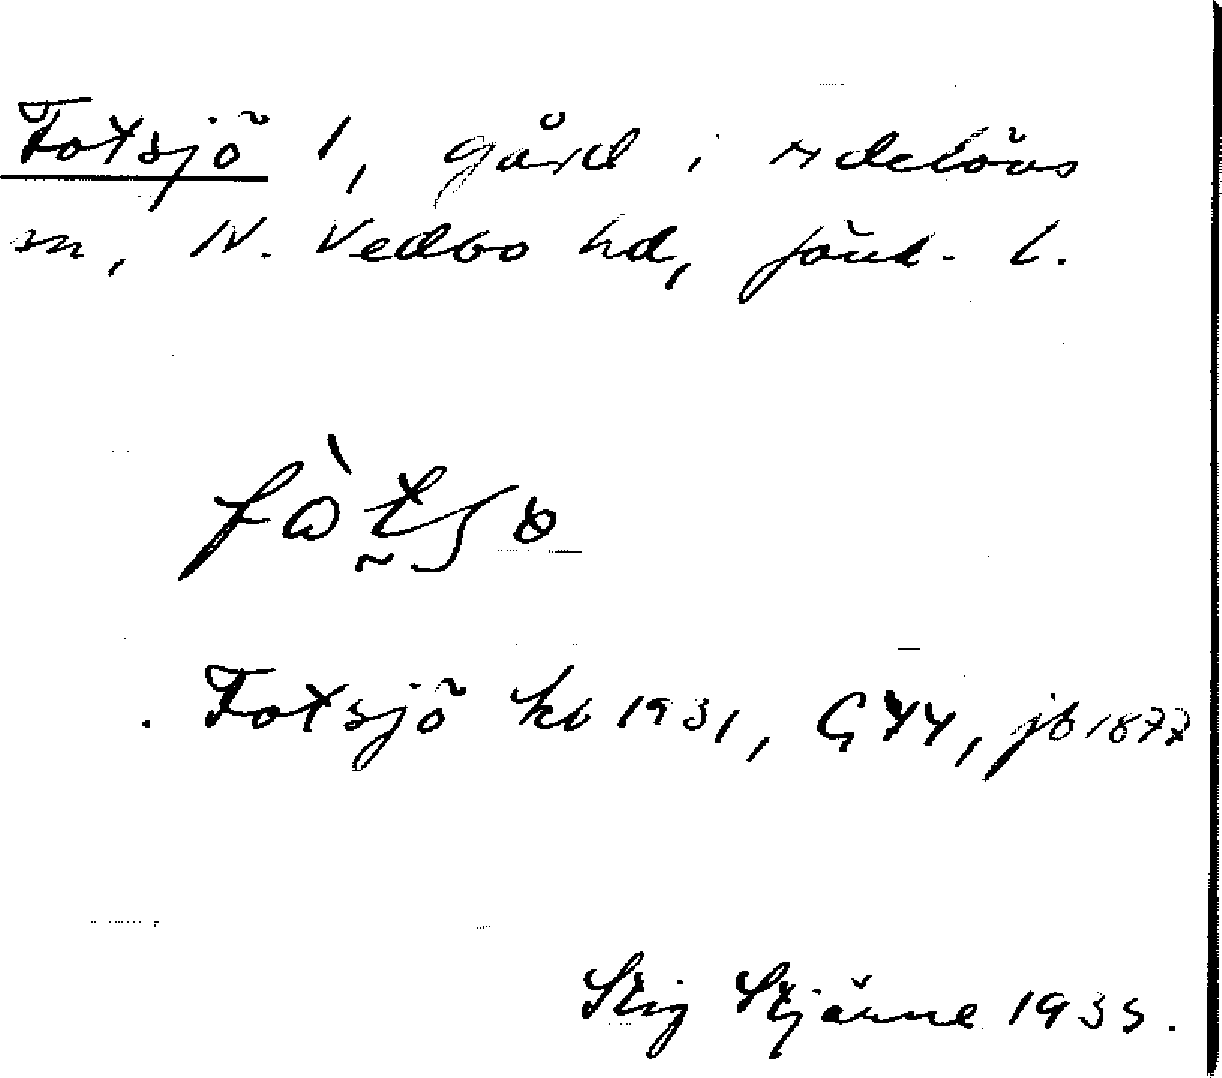 Fotsjö 1, gård i Adelövs
sn, N. Vedbo hd, Jönk. l.
Fotsjö kb 1931, GYY, jb 1877
Stig Stjärne 1935.